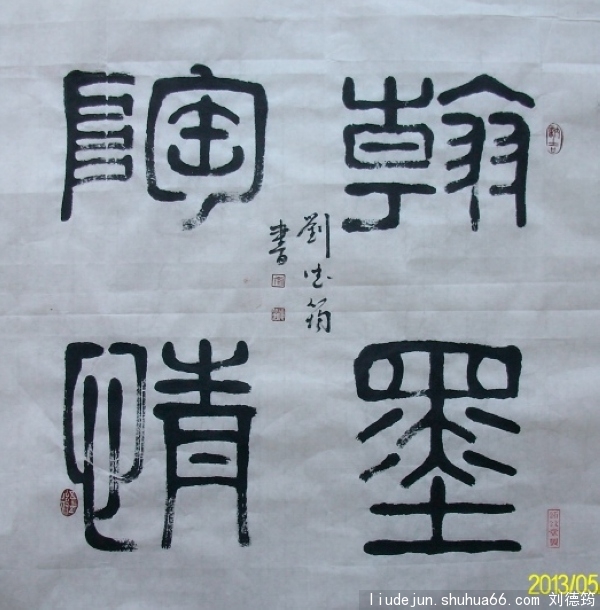 翰墨
陶情
劉德筠
書
2013/05
liudejun.shuhua66.com 刘德筠